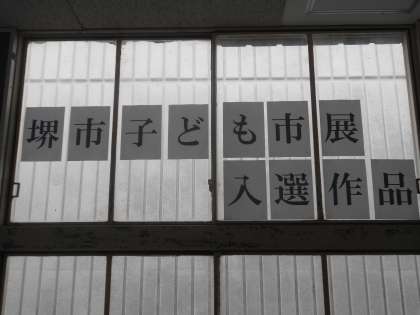 堺市子ども市展
入選作品